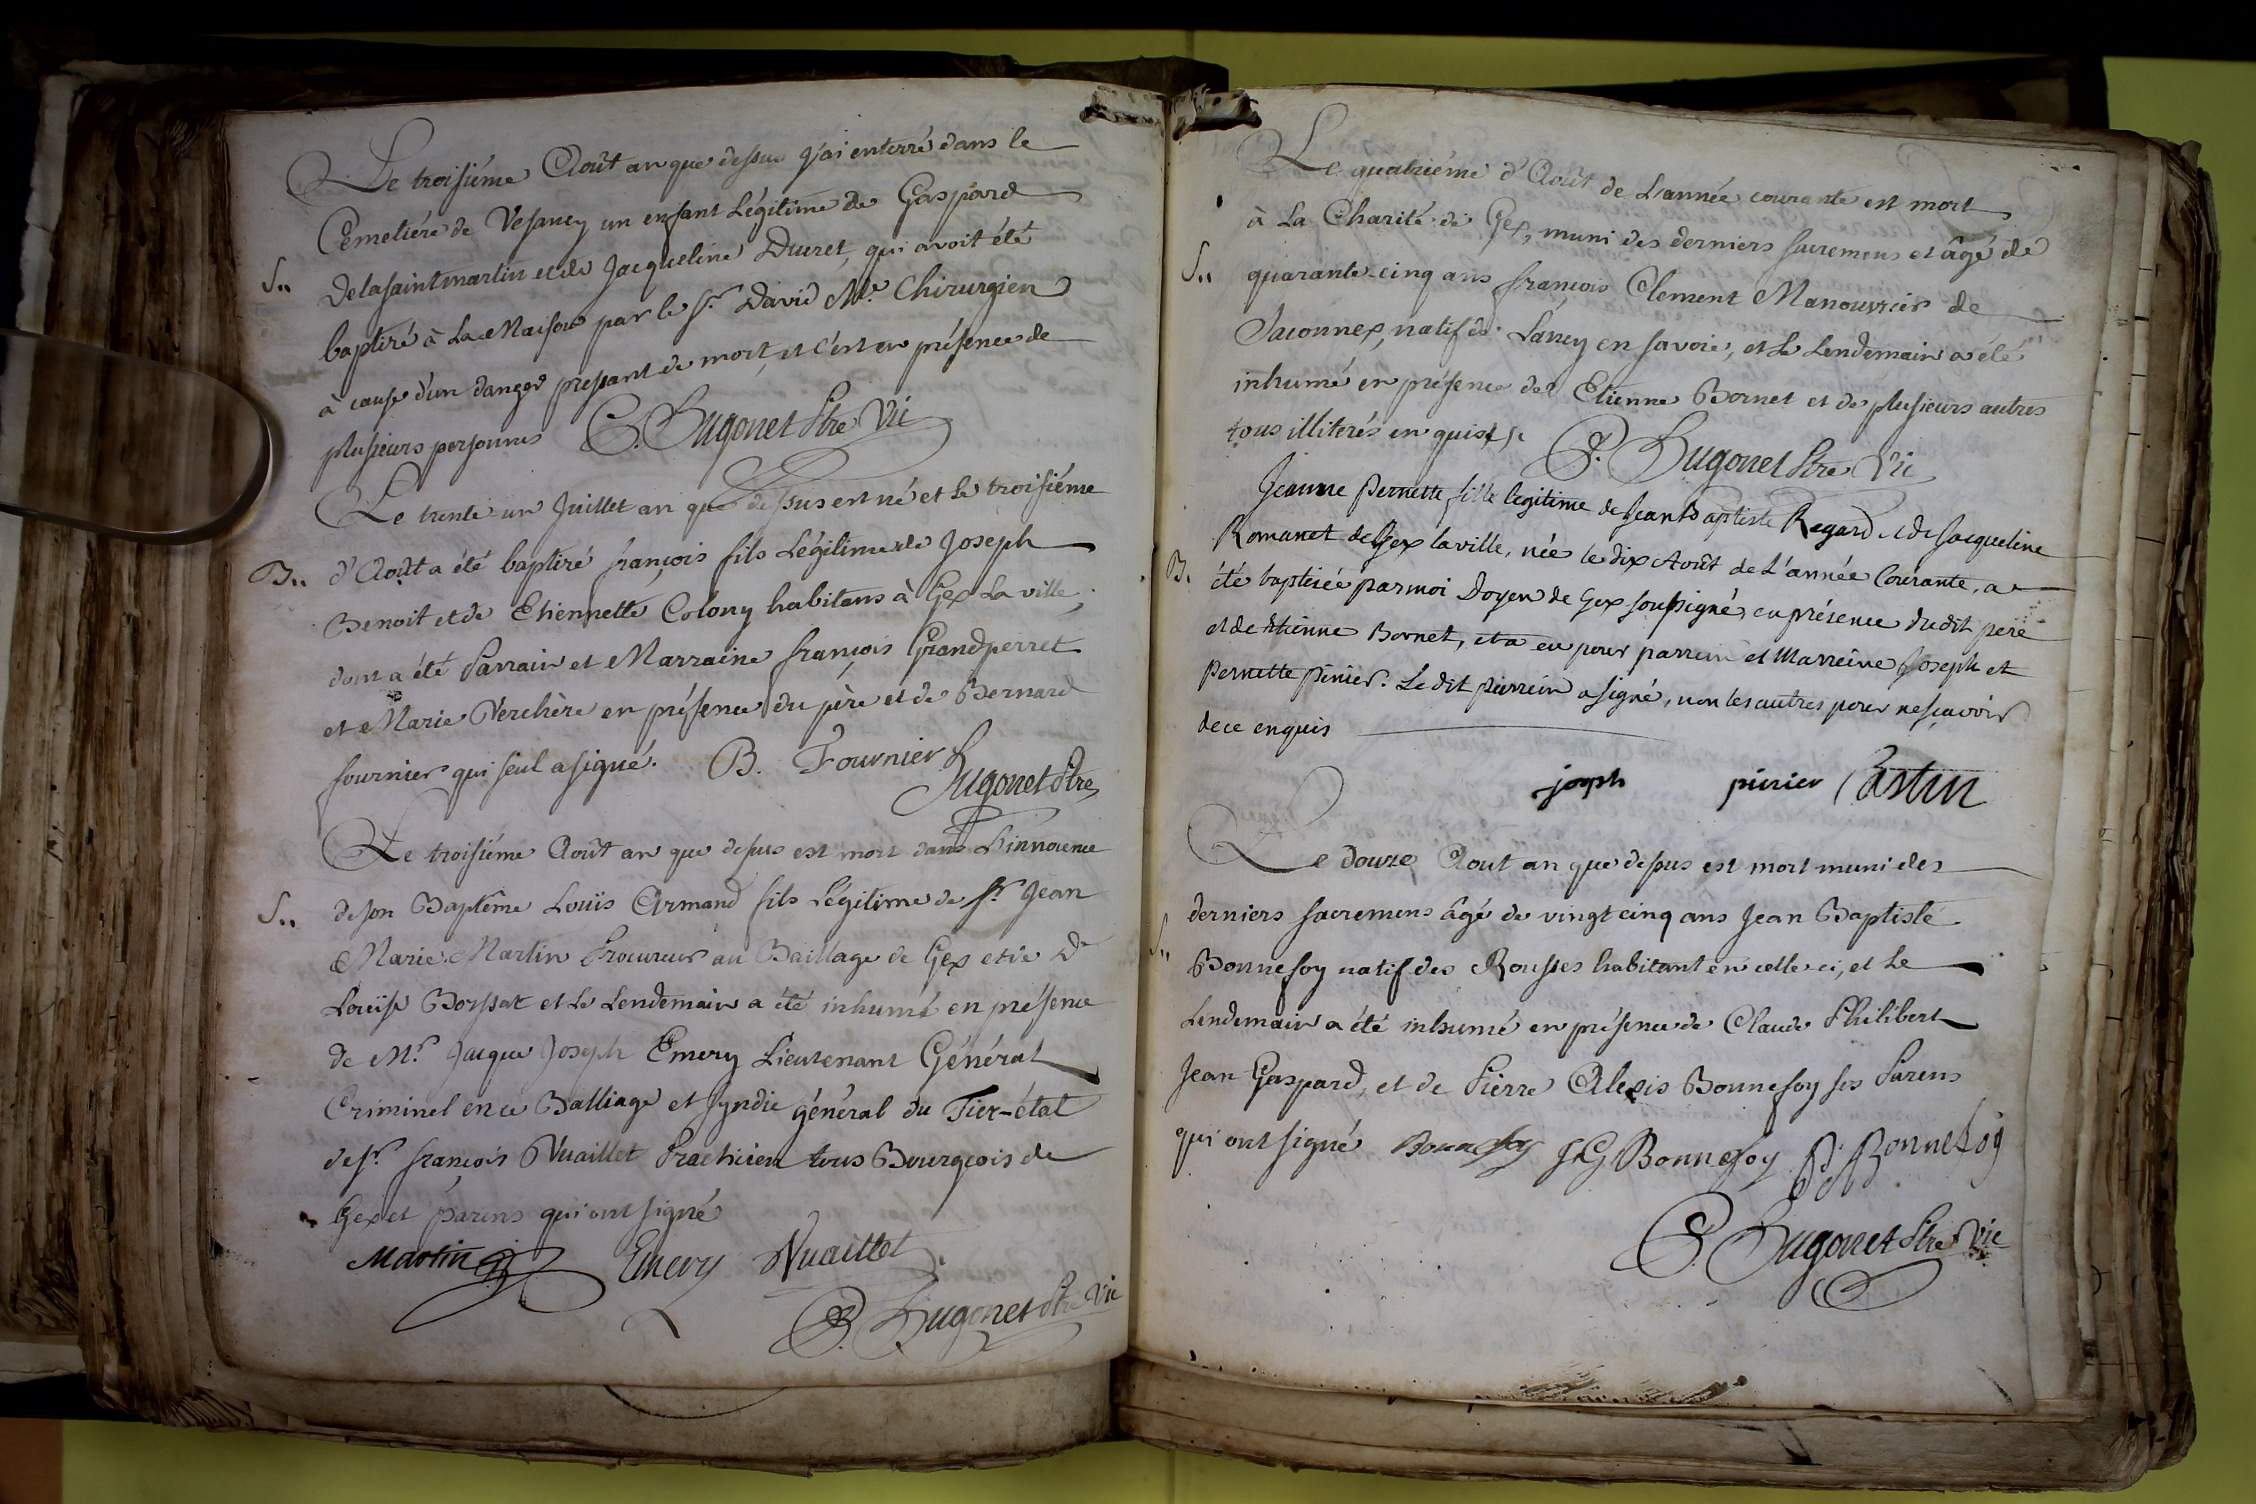 Le troisiéme Août an que dessus j'ai enterré dans le
Cemetiére de Vesancy un enfant Légitime de Gaspard
S..
Delasaintmartin et de Jacqueline Duret, qui avoit été
baptizé à La Maison par le Sr. David Me. Chirurgien
à cause d'un danger pressant de mort, et c'est en présence de
plusieurs personnes C. Hugonet Ptre Vic
Le trente-un Juillet an que dessus est né et le troisiéme
B..
d'Août a été baptizé françois fils Légitime de Joseph
Benoit et de Etiennette Colony habitans à Gex La ville;
dont a été Parrain et Marraine françois Grandperret
et Marie Verchère en présence du père et de Bernard
fournier qui seul a signé. B. Fournier
Hugonet Ptre
Le troisiéme Août an que dessus est mort dans L'innocence
S..
de son Baptême Loüis Armand fils Légitime de Sr. Jean
Marie Martin Procureur au Bailliage de Gex et de De
Loüise Borssat et Le Lendemain a été inhumé en présence
de Mr. Jacque Joseph Emery Lieutenant Général
Criminel en ce Balliage et syndic général du Tier-état
de Sr. françois Vuaillet Praticien tous Bourgeois de
Gex et parens qui ont signé
Martin Emery Vuaillet
C. Hugonet Ptre Vic
Le quatriéme d'Août de L'année courante est mort
à La Charité de Gex, muni des derniers sacremens et âgé de
S..
quarante-cinq ans françois Clement Manouvrier de
Saconnex, natif de Lancy en savoie, et Le Lendemain a été
inhumé en présence de Etienne Bornet et de plusieurs autres
tous illiterés enquis C. Hugonet Ptre Vic
Jeanne Pernette fille legitime de Jean Baptiste Regard et de Jacqueline
Romanet de Gex la ville, née le dix Août de L'année Courante, a
B.
été baptisée par moi Doyen de Gex soussigné, en présence du dit pere
et de Etienne Bornet, et a eu pour parrein et Marreine Joseph et
Pernette Pinier. Le dit parrein a signé, non les autres pour ne sçavoir
de ce enquis
joseph pinier Castin
Le douze Aout an que dessus est mort muni des
derniers sacremens âgé de vingt cinq ans Jean Baptiste
S..
Bonnefoy natif des Rousses habitant en celle ci, et Le
Lendemain a été inhumé en présence de Claude Philibert
Jean Gaspard, et de Pierre Alexis Bonnefoy ses Parens
qui ont signé Bonnefoy J G Bonnefoy P A Bonnefoy
C. Hugonet Ptre Vic